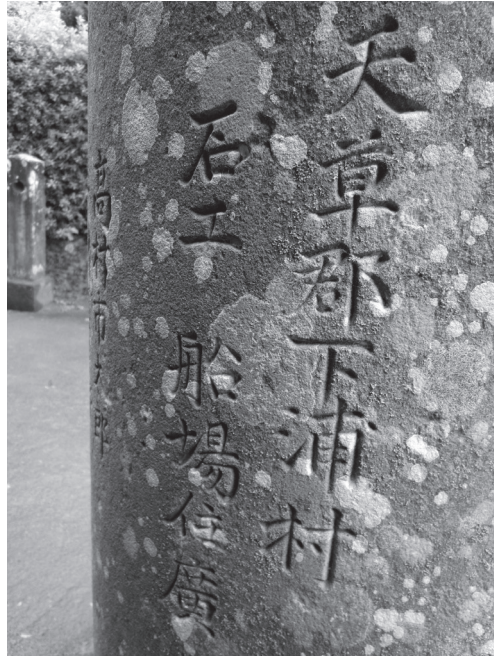 天草郡下浦村
石工 船場住廣
高橋市太郎